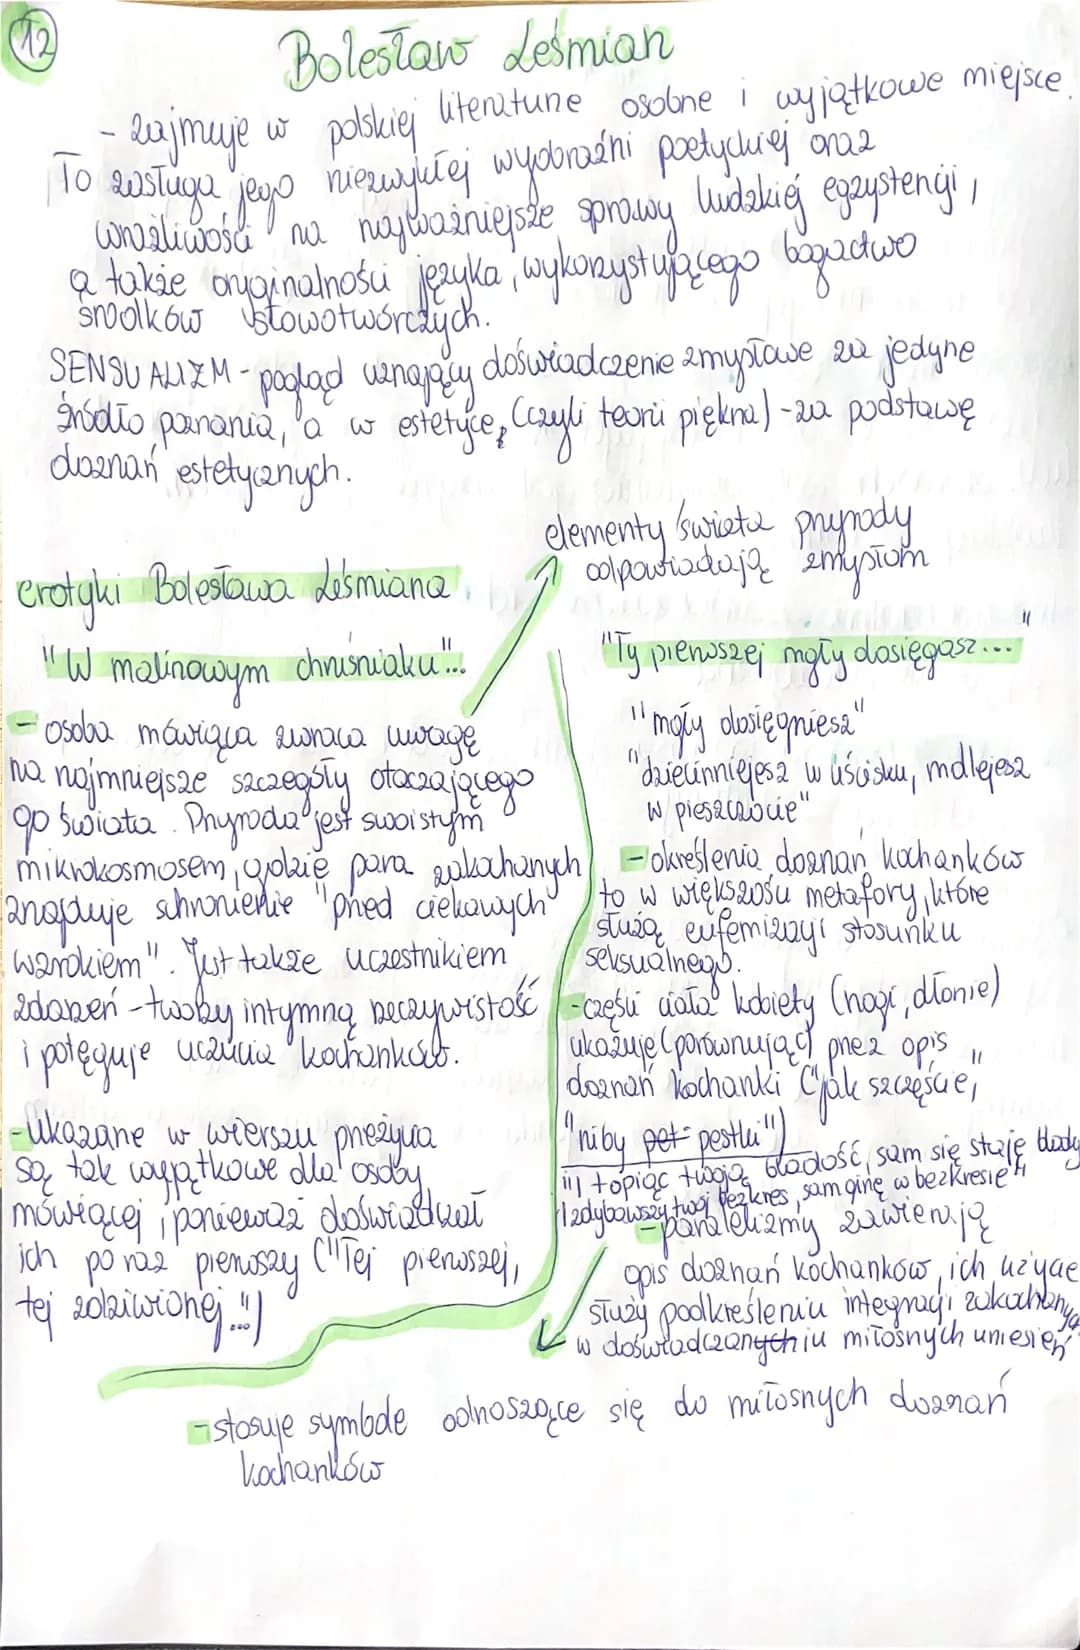 12
Bolesław Leśmian
- zajmuje w polskiej literaturze osobne i wyjątkowe miejsce.
To zasługa jego niezwykłej wyobraźni poetyckiej oraz
wrażliwości na najważniejsze sprawy ludzkiej egzystencji,
a także oryginalności języka, wykorzystującego bogactwo
środków słowotwórczych.
SENSUALIZM - pogląd uznający doświadczenie zmysłowe za jedyne
źródło poznania, a w estetyce, (czyli teorii piękna) - za podstawę
doznań estetycznych.
elementy świata przyrody
odpowiadają zmysłom
erotyki Bolesława Leśmiana
"W malinowym chruśniaku"...
- osoba mówiąca zwraca uwagę
na najmniejsze szczegóły otaczającego
go świata. Przyroda jest swoistym
mikrokosmosem, gdzie para zakochanych
znajduje schronienie "przed ciekawych
wzrokiem". Jest także uczestnikiem
zdarzeń - tworzy intymną rzeczywistość
i potęguje uczucia kochanków.
- Ukazane w wierszu przeżycia
są tak wyjątkowe dla osoby
mówiącej, ponieważ doświadczał
ich po raz pierwszy ("Tej pierwszej,
tej zdziwionej...")
"Ty pierwszej mgły dosięgasz..."
"mgły dosięgniesz"
"dziecinniejesz w uścisku, malejesz
w pieszczocie"
- określenia doznań kochanków
to w większości metafory, które
służą eufemizacji stosunku
seksualnego.
- części ciała kobiety (nogi, dłonie)
ukazuje (porównując) przez opis
doznań kochanki ("jak szczęście,"
"niby pet pestki")
"I topiąc twoją bladość, sam się staję blady
I zdybawszy twój bezkres, sam ginę w bezkresie"
- paralelizmy zawierają
opis doznań kochanków, ich użycie
służy podkreśleniu integracji zakochanych
w doświadczanych iu miłosnych uniesień
- stosuje symbole odnoszące się do miłosnych doznań
kochanków